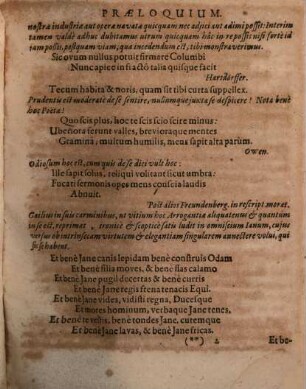 PRÆLOQUIUM.
nostra industria aut opera navata quicquam nec adjici aut adimi possit: Interim
tamen valdè adhuc dubitamus utrum quicquam hâc in re possit nisi fortè id
jam possis, postquam viam, quâ incedendum est, tibi monstraverimus.
Sic ovum nullus potuit firmere Columbi
Nunc apice in fracto talis quisque facit
Harsdörffer.
Tecum habita & noris, quam sit tibi curta suppellex.
Prudentis est moderatè de se sentire, nullumque juxta se despicere! Nota benè
hoc Poëta!
Quo scis plus, hoc te scis scio scire minus:
Ubenora serunt valles, brevioraque mentes
Gramina, multum humilis, mens sapit alta parùm.
Owen.
Odiosum hoc est, cum quis de se dici vult hoc:
Ille sapit solus, reliqui volitant sicut umbra:
Fucati sermonis opes mens conscia laudis
Abnuit.
Poët alios Freundenberg. in rescript. morat.
Catlius in suis carminibus, ut vitium hoc Arrogantiæ aliquatenus & quantum
in se est, reprimat, ironticè & sceptice satis ludit in omniscium Ianum, cujus
versus ob intrinsecam virtutem & elegantiam singularem annectere volui, qui
sic se habent.
Et benè Jane canis lepidam benè construis Odam
Et benè filia moves, & benè flas calamo
Et benè Jane pugil decertas & benè curris
Et benè Jane regis frena tenacis Equi.
Et benè Jane vides, vidisti regna, Ducesque
Et mores hominum, verbaque Jane tenes,
Et benè tu vestis, benè tondes Jane, cutemque
Et benè Jane lavas, & benè Jane fricas.
(**) 2 Et be-